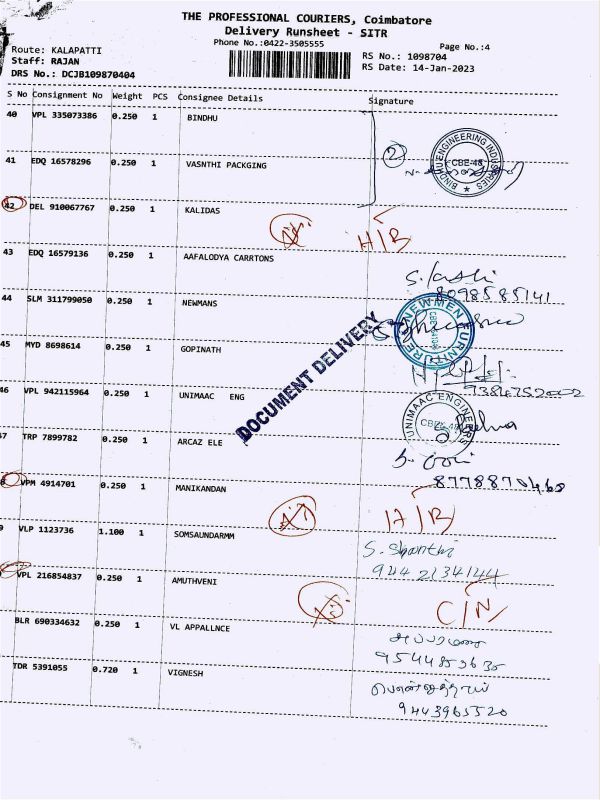 THE PROFESSIONAL COURIERS, Coimbatore
Delivery Runsheet - SITR
Phone No.:0422-3505555
Page No.:4
Route: KALAPATTI
Staff: RAJAN
DRS No.: DCJB109870404
RS No.: 1098704
RS Date: 14-Jan-2023
S No Consignment No Weight PCS Consignee Details Signature
40 VPL 335073386 0.250 1 BINDHU
2
BINDHU ENGINEERING INDUSTRIES
CBE-48
41 EDQ 16578296 0.250 1 VASNTHI PACKGING
42 DEL 910067767 0.250 1 KALIDAS
H/B
43 EDQ 16579136 0.250 1 AAFALODYA CARRTONS
8098585141
44 SLM 311799050 0.250 1 NEWMANS
NEWMEN FURNITURE
45 MYD 8698614 0.250 1 GOPINATH
9384752002
DOCUMENT DELIVERY
46 VPL 942115964 0.250 1 UNIMAAC ENG
UNIMAAC ENGINEERS
7 TRP 7899782 0.250 1 ARCAZ ELE
8778870468
8 VPM 4914701 0.250 1 MANIKANDAN
H/B
9 VLP 1123736 1.100 1 SOMSAUNDARMM
S. Shanthi
9442134144
VPL 216854837 0.250 1 AMUTHVENI
C/N
BLR 690334632 0.250 1 VL APPALLNCE
TDR 5391055 0.720 1 VIGNESH
9443965520